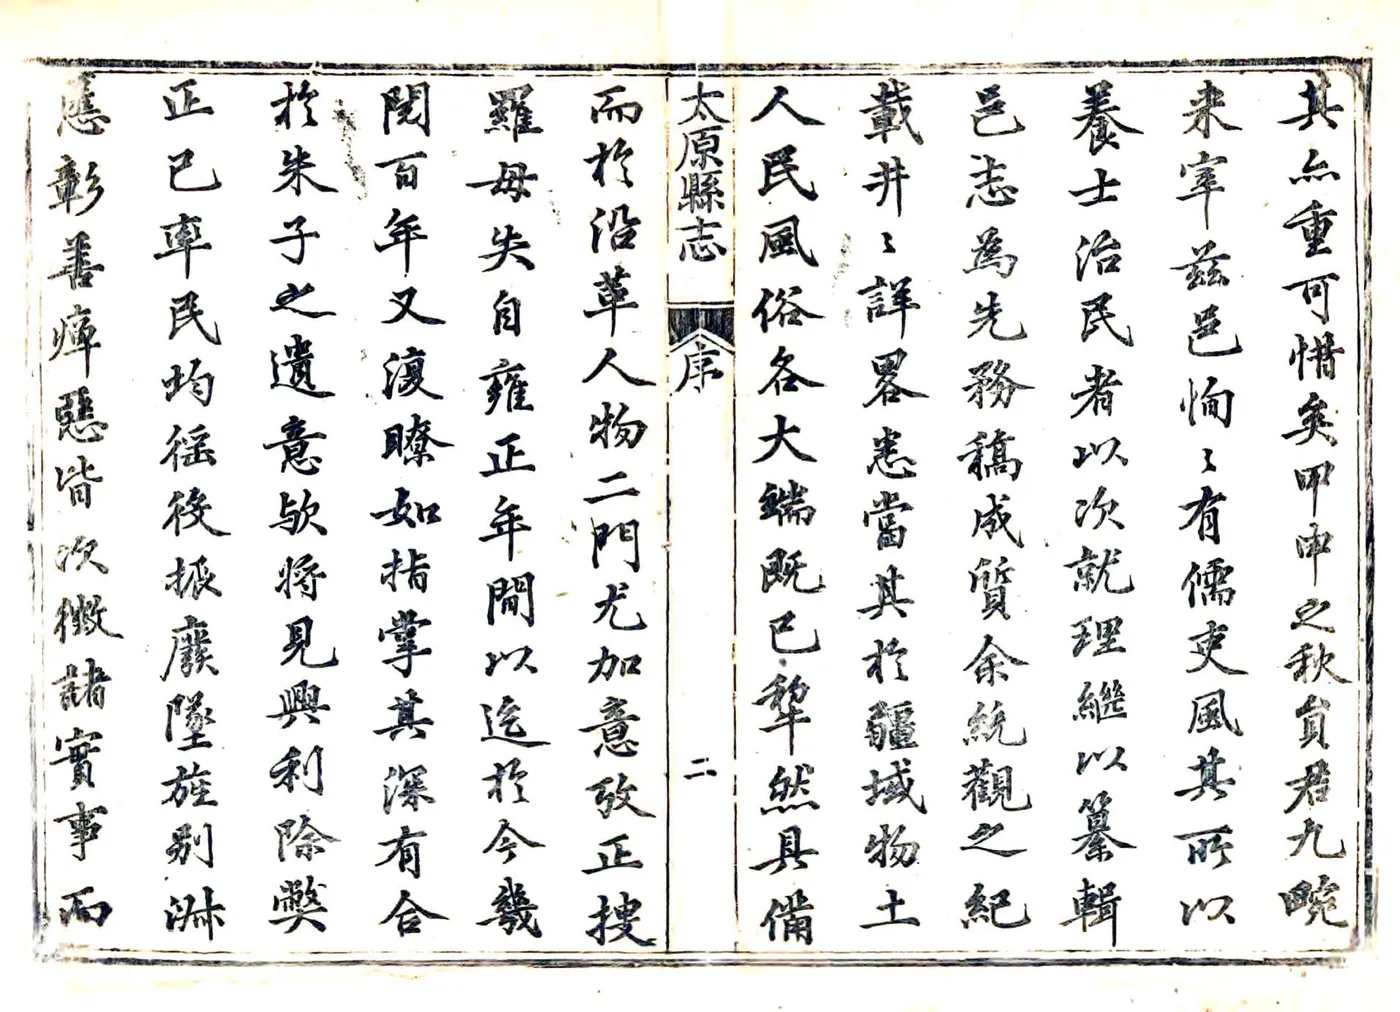 其亦重可惜矣甲申之秋貟君九畹
来宰茲邑恂〻有儒吏風其所以
養士治民者以次就理繼以纂輯
邑志為先務稿成質余統觀之紀
載井〻詳畧悉當其於疆域物土
人民風俗各大端既已犂然具備
太原縣志
序
二
而於沿革人物二門尤加意攷正搜
羅毋失自雍正年間以迄於今幾
閱百年又復瞭如指掌其深有合
於朱子之遺意歟將見興利除獘
正已率民均徭役振廢墜旌別淑
慝彰善癉惡皆次徵諸實事而